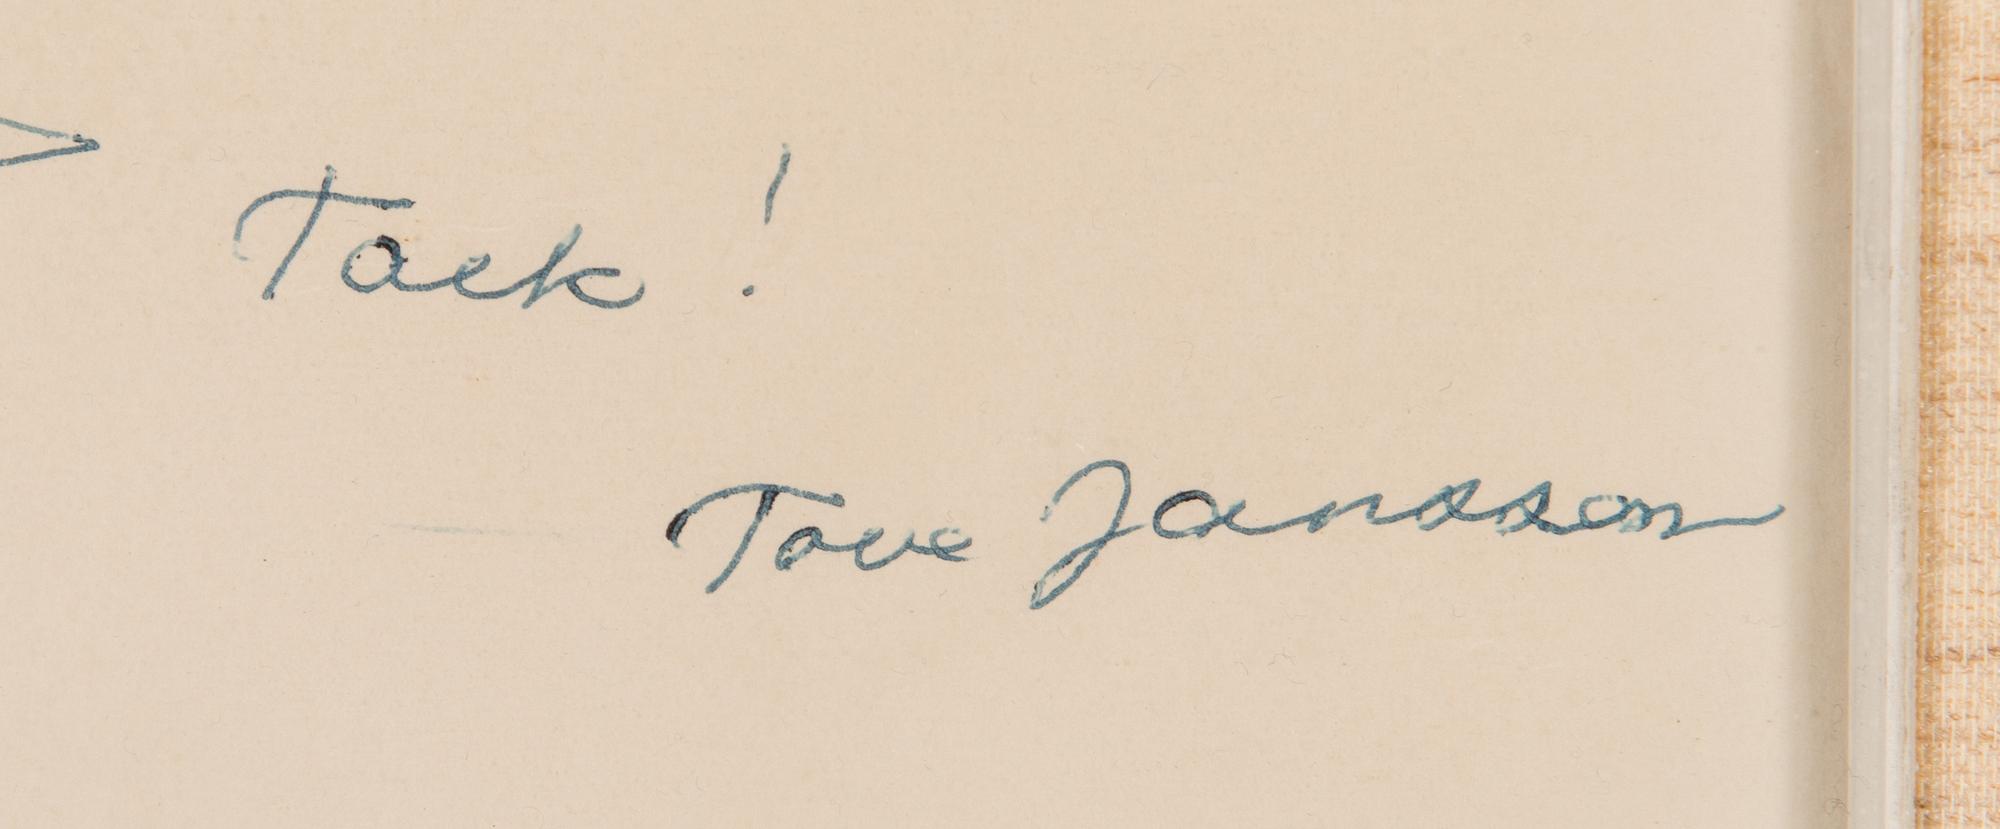 Tack!
Tove Jansson